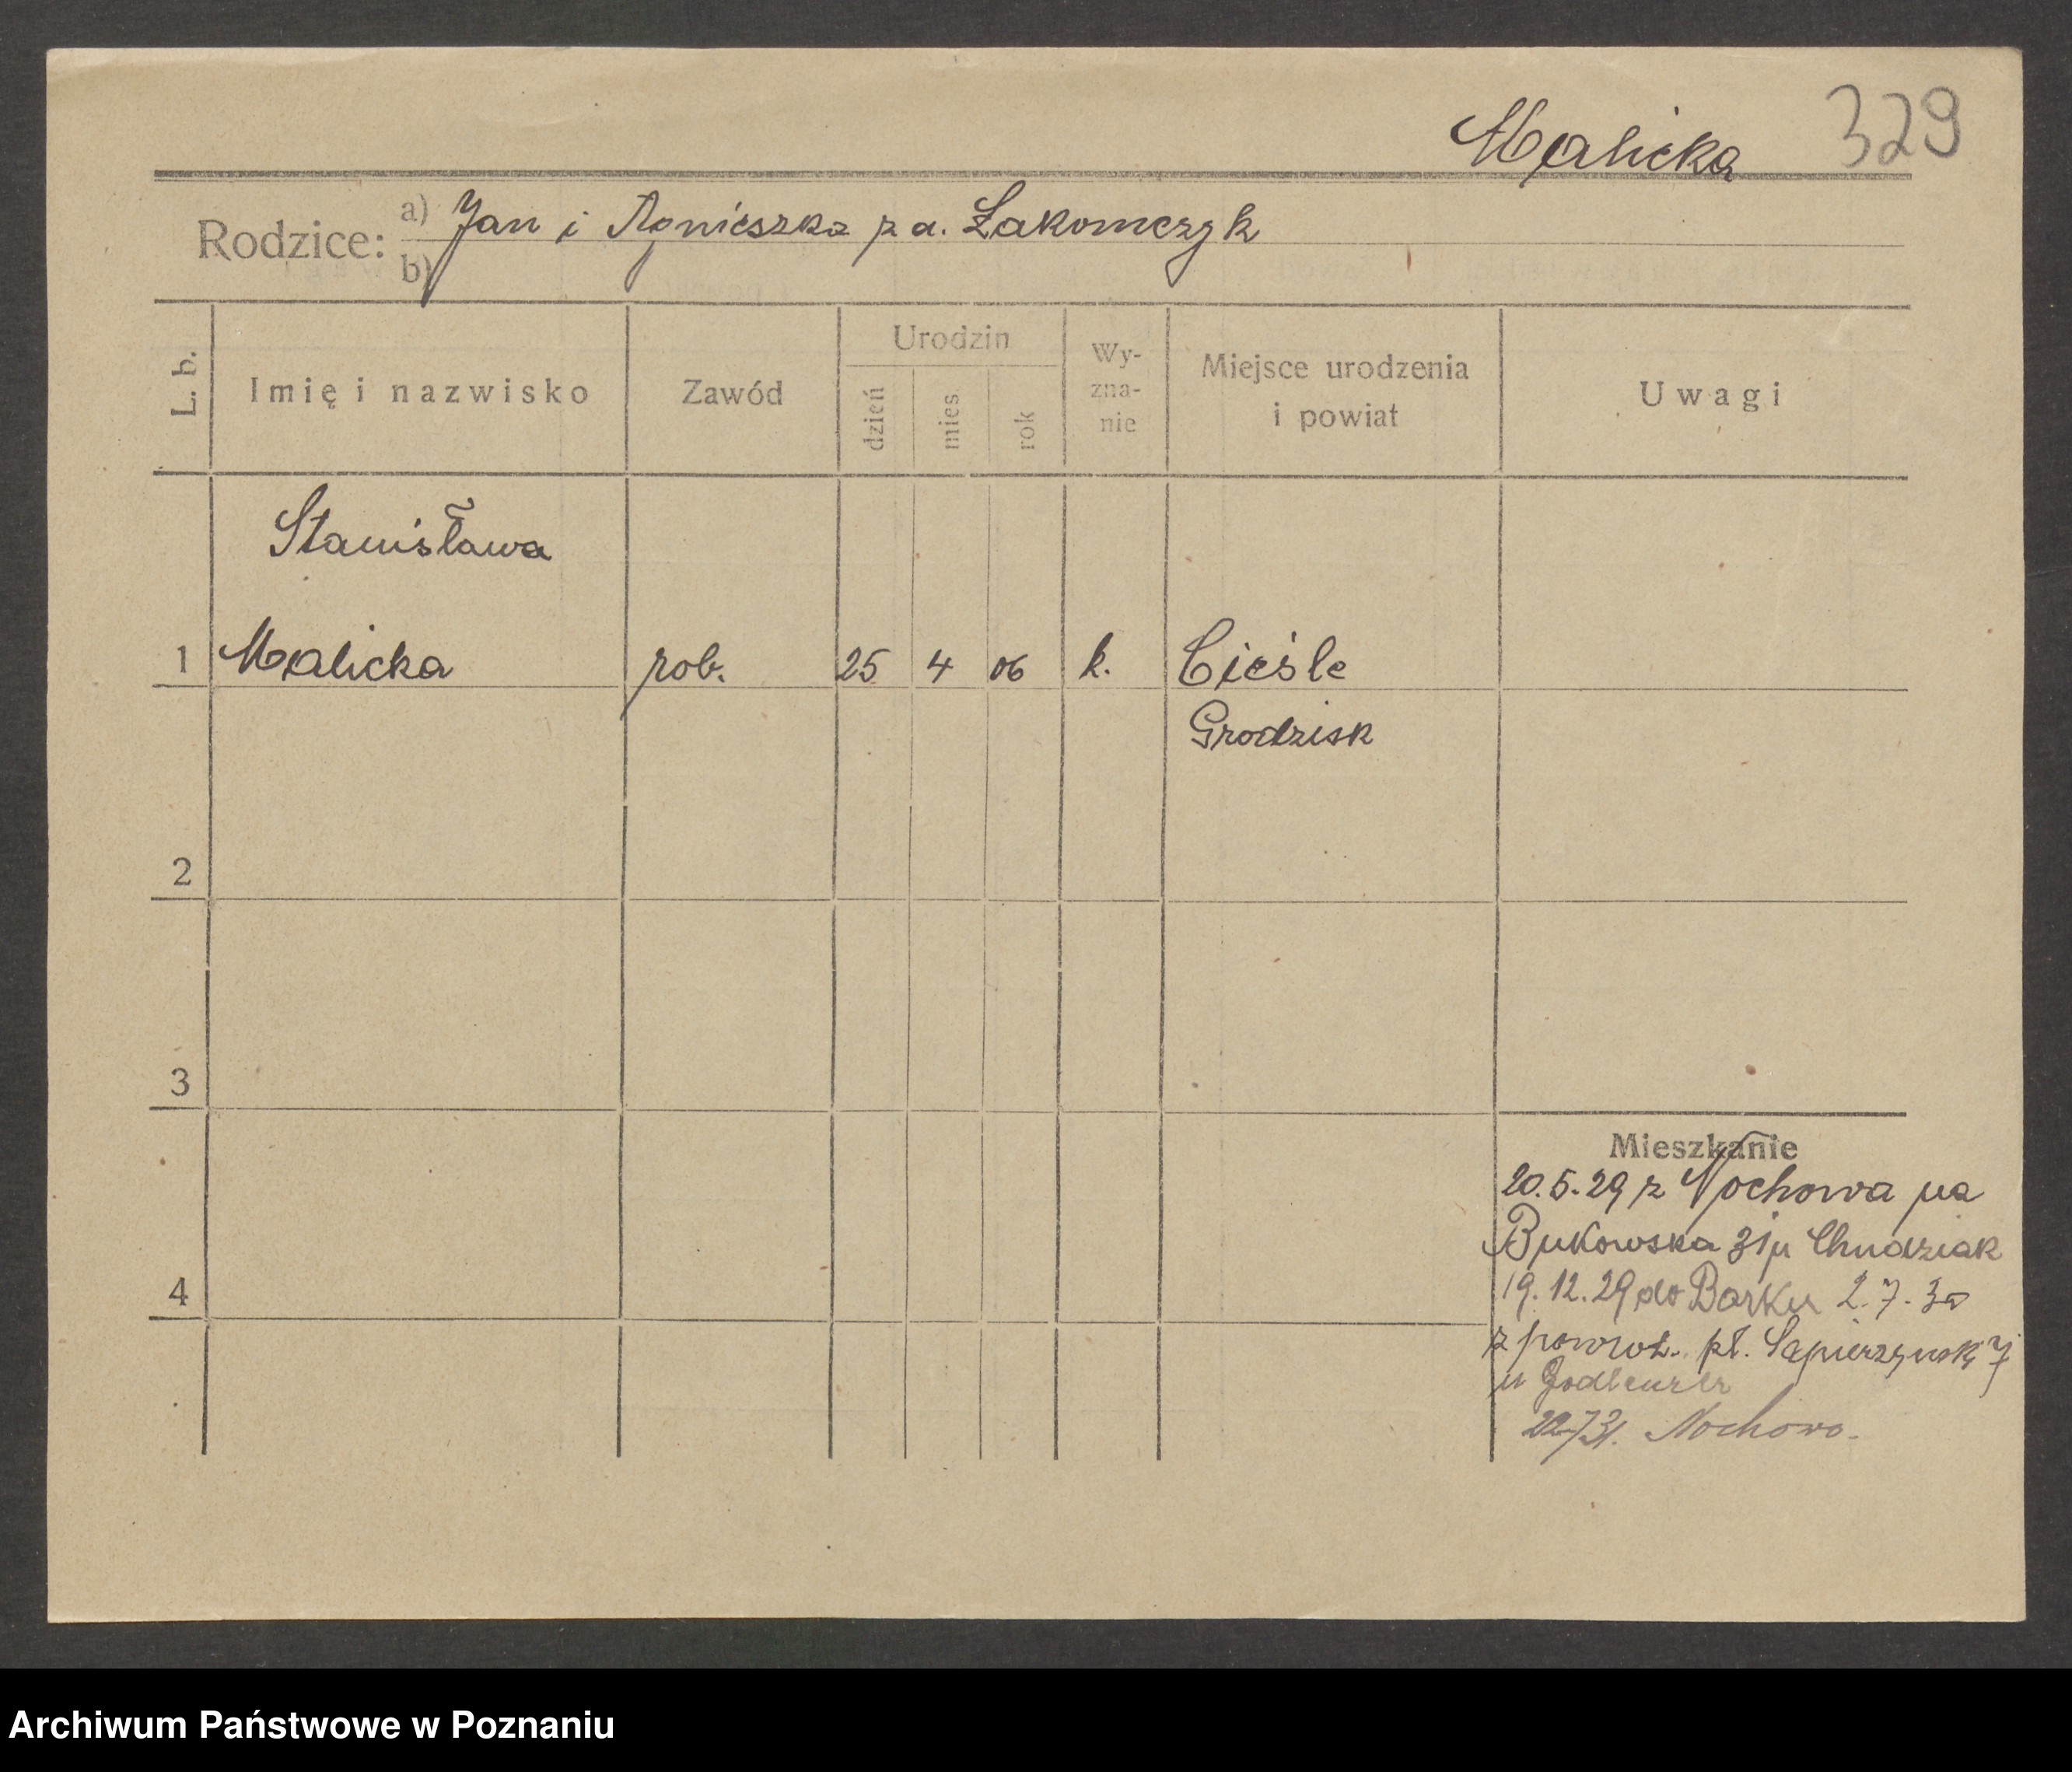 Malicka 329
Rodzice: a) Jan i Agnieszka z d. Łakomczyk
b)
L. b.
Imię i nazwisko
Zawód
Urodzin
dzień
mies.
rok
Wy-
zna-
nie
Miejsce urodzenia
i powiat
Uwagi
Stanisława
1 Malicka rob. 25 4 06 k. Cieśle
Grodzisk
2
3
4
Mieszkanie
20.5.29 z Nochowa na
Bukowska 31 u Chudziak
19.12.29 do Borku 2.7.30
z powrot. pl. Sapierzyński 7
u
22/7 31. Nochowo.
Archiwum Państwowe w Poznaniu